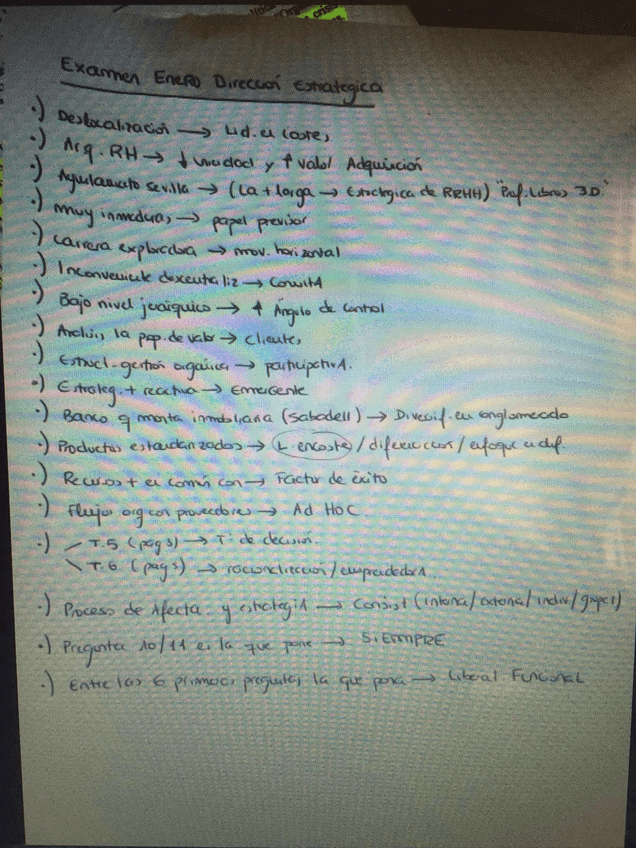 Examen Enero Dirección Estrategica
·) Deslocalización → Lid. en costes
·) Arq. RH → ↓ Unicidad y ↑ Valor Adquisición
·) Ayuntamiento Sevilla → (La + larga → Estrategica de RRHH) "Prof. Libros 3D."
·) Muy inmaduras → papel previsor
·) Carrera exploradora → mov. horizontal
·) Inconveniente descentraliz →
·) Bajo nivel jerárquico → ↑ Ángulo de Control
·) la prop. de valor → Clientes
·) Estruct-gestión orgánica → participativA.
·) Estrateg. + reactiva → Emergente
·) Banco q monta inmobiliaria (Sabadell) → Diversif. en conglomerado
·) Productos estandarizados → L. en coste / diferenciación / enfoque en dif.
·) Recursos + en común con → Factor de éxito
·) Flujos org con proveedores → Ad Hoc.
·) T.5 (pag 5) → Tª de decisión.
T.6 (pag 5) → / emprendedorA.
·) Proceso de Afecta y estrategiA → Consist (interna/externa/indiv/grupal)
·) Pregunta 10/11 es la que pone → SIEMPRE
·) Entre las 6 primeras preguntas la que pona → Liberal Funcional